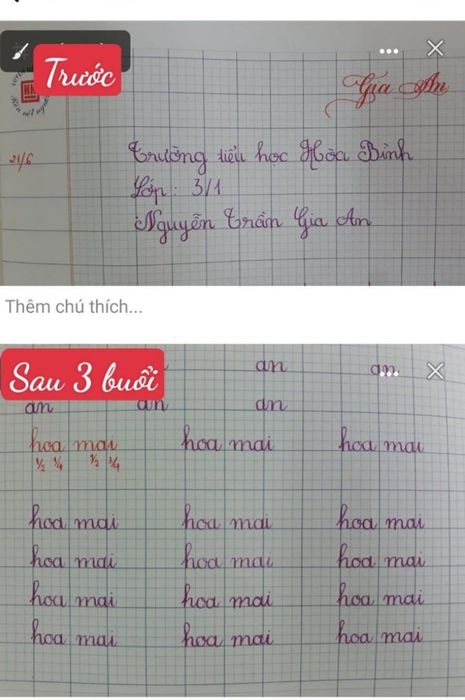 Trước
Gia An
21/6
Trường tiểu học Hòa Bình
Lớp : 3/1
Nguyễn Trần Gia An
Thêm chú thích...
Sau 3 buổi
an an
an an an
hoa mai hoa mai hoa mai
1/2 1/4 1/2 3/4
hoa mai hoa mai hoa mai
hoa mai hoa mai hoa mai
hoa mai hoa mai hoa mai
hoa mai hoa mai hoa mai